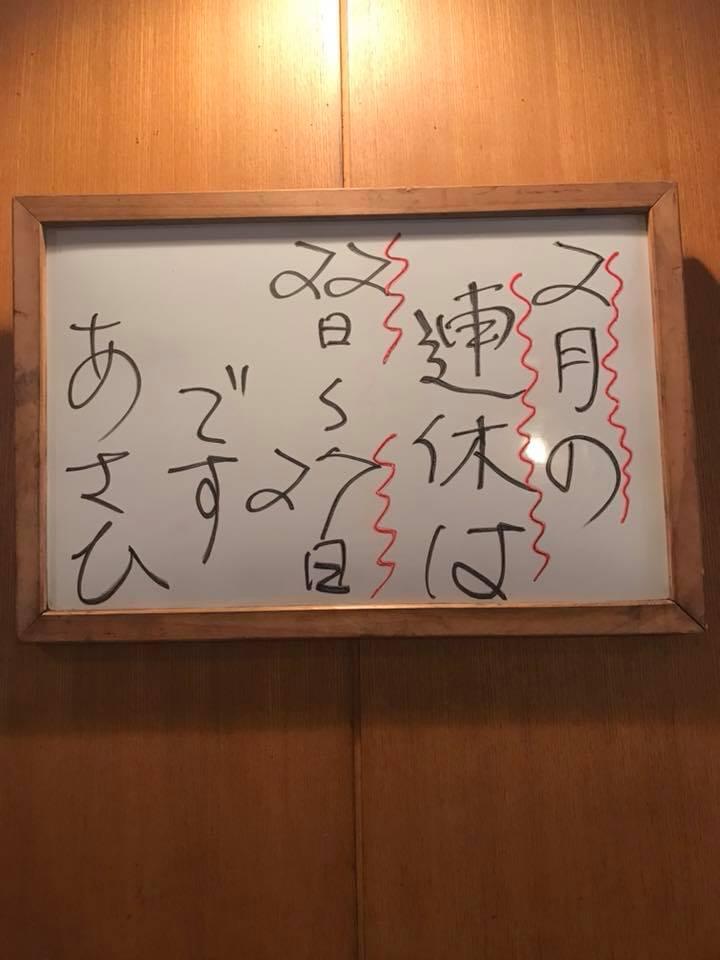 2月の
連休は
22日～27日
です
あさひ